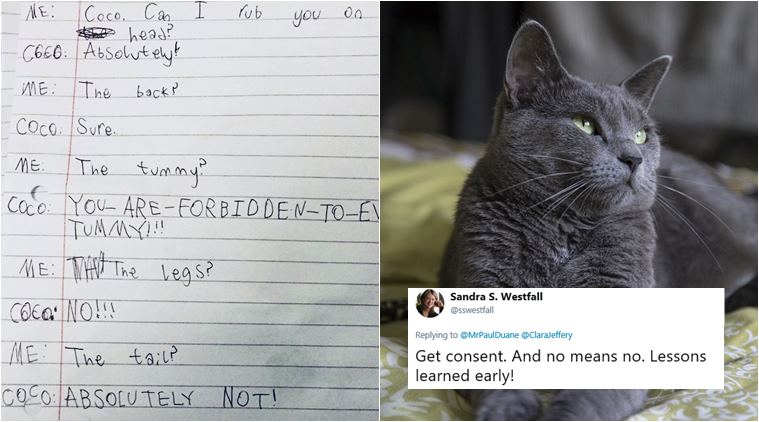 ME: Coco. Can I rub you on
head?
COCO: Absolutely!
ME: The back?
COCO: Sure.
ME: The tummy?
COCO: YOU-ARE-FORBIDDEN-TO-EV
TUMMY!!!
ME: The legs?
COCO: NO!!!
ME: The tail?
COCO: ABSOLUTELY NOT!
Sandra S. Westfall
@sswestfall
Replying to @MrPaulDuane @ClaraJeffery
Get consent. And no means no. Lessons
learned early!